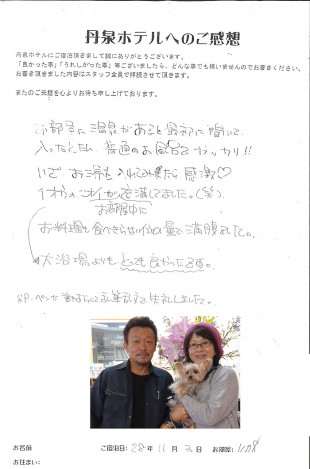 丹泉ホテルへのご感想
丹泉ホテルにご宿泊頂きまして誠にありがとうございます。
「良かった事」「うれしかった事」等ございましたら、どんな事でも構いませんのでお書きください。
お書き頂きました内容はスタッフ全員で拝読させて頂きます。
またのご来館を心よりお待ち申し上げております。
お部屋に温泉があると最初に聞いて、
入ったとたん、普通のお風呂でガッカリ!!
いざお湯を入れてみたら感激♡
イオウのニオイが充満してました。(笑)
お部屋中に
お料理も食べきらないくらいの量で満腹でした。
大浴場よりもとっても良かったです。
P.S. ペンが
乱筆乱文で失礼しました。
お名前 ご宿泊日: 28年 11月 3日 お部屋:
お住まい: